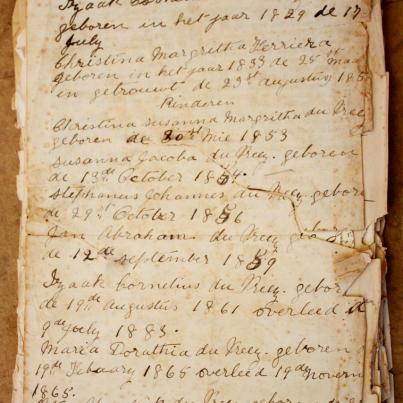 Izaak
geboren in het jaar 1829 de 17
July
Christina Margritha Ferriera
geboren in het jaar 1833 de 25 st
en getrouwt de 23 st augustus 185
Kinderen
Christina Susanna Margritha du Preez
geboren de 30 st Mie 1853
Susanna Jacoba du Preez. geboren
de 13 de October 1854.
Stephanus Johannes du Preez. gebore
de 29 st October 1856
Jan Abraham du Preez geb
de 12 de september 1859
Izaak Cornelius du Preez. gebor
de 19 de augustus 1861 overleed de
9 de July 1883.
Maria Dorathia du Preez. geboren
19 de Febuary 1865 overleed 19 de Novem
1865.
du Preez geboren de